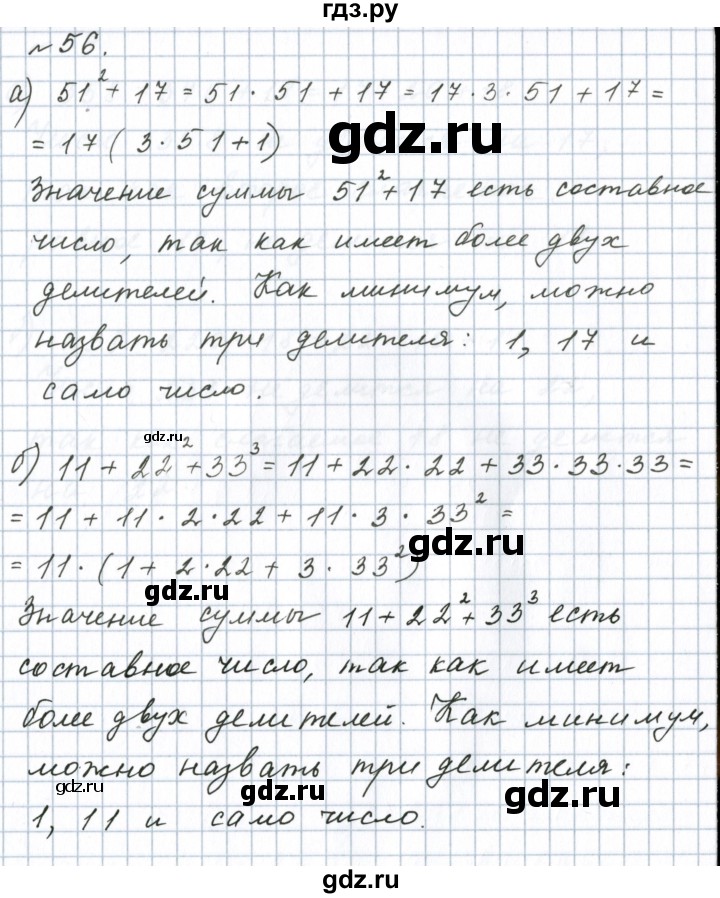 гдз.ру
№ 56.
а) 51² + 17 = 51 · 51 + 17 = 17 · 3 · 51 + 17 =
= 17 ( 3 · 51 + 1)
gdz.ru
Значение суммы 51² + 17 есть составное
число, так как имеет более двух
делителей. Как минимум, можно
назвать три делителя: 1, 17 и
само число.
gdz.ru
gdz.ru
б) 11 + 22² + 33³ = 11 + 22 · 22 + 33 · 33 · 33 =
= 11 + 11 · 2 · 22 + 11 · 3 · 33² =
gdz.ru
= 11 · (1 + 2 · 22 + 3 · 33²)
gdz.ru
Значение суммы 11 + 22² + 33³ есть
составное число, так как имеет
более двух делителей. Как минимум,
можно назвать три делителя:
gdz.ru
gdz.ru
1, 11 и само число.
gdz.ru
gdz.ru